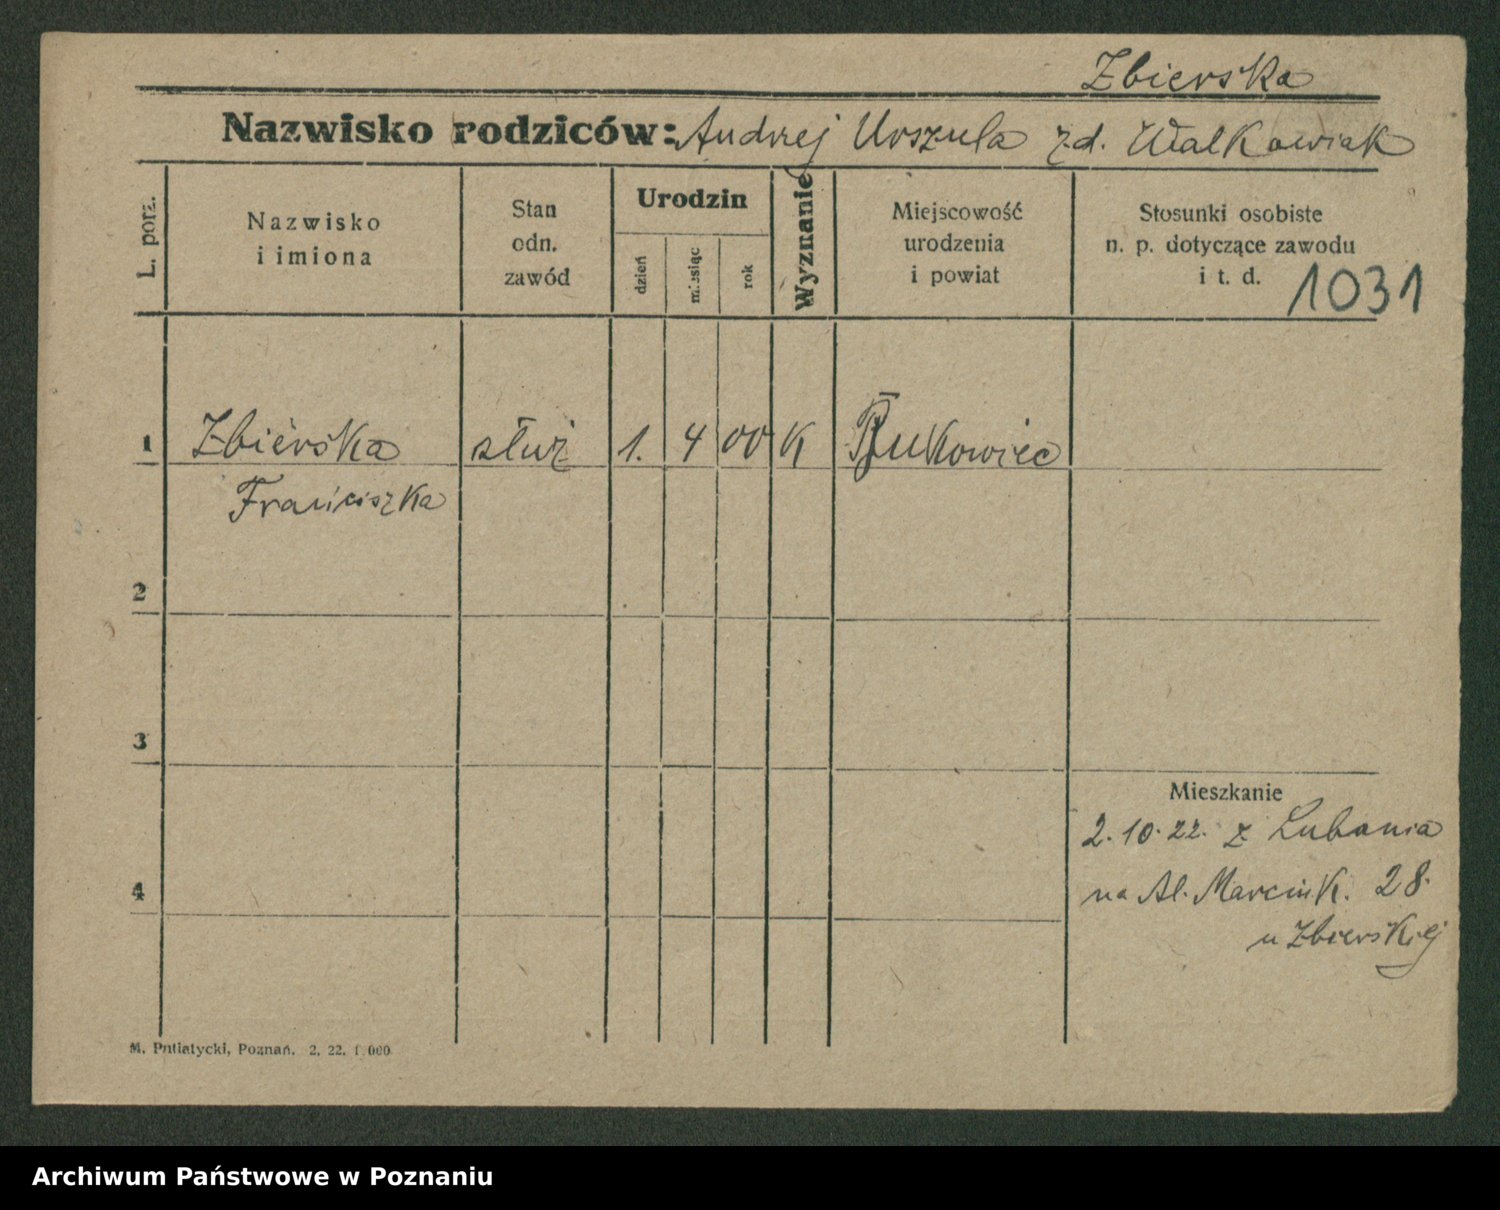 Zbierska
Nazwisko rodziców: Andrzej Urszula zd. Walkowiak
L. porz.
Nazwisko
i imiona
Stan
odn.
zawód
Urodzin
dzień
miesiąc
rok
Wyznanie
Miejscowość
urodzenia
i powiat
Stosunki osobiste
n. p. dotyczące zawodu
i t. d.
1031
1 Zbierska służ 1. 4 00 K Bukowiec
Franciszka
2
3
4
Mieszkanie
2.10.22. z Lubania
na Al. Marcink. 28.
u Zbierskiej
M. Putiatycki, Poznań. 2. 22. 1 000
Archiwum Państwowe w Poznaniu